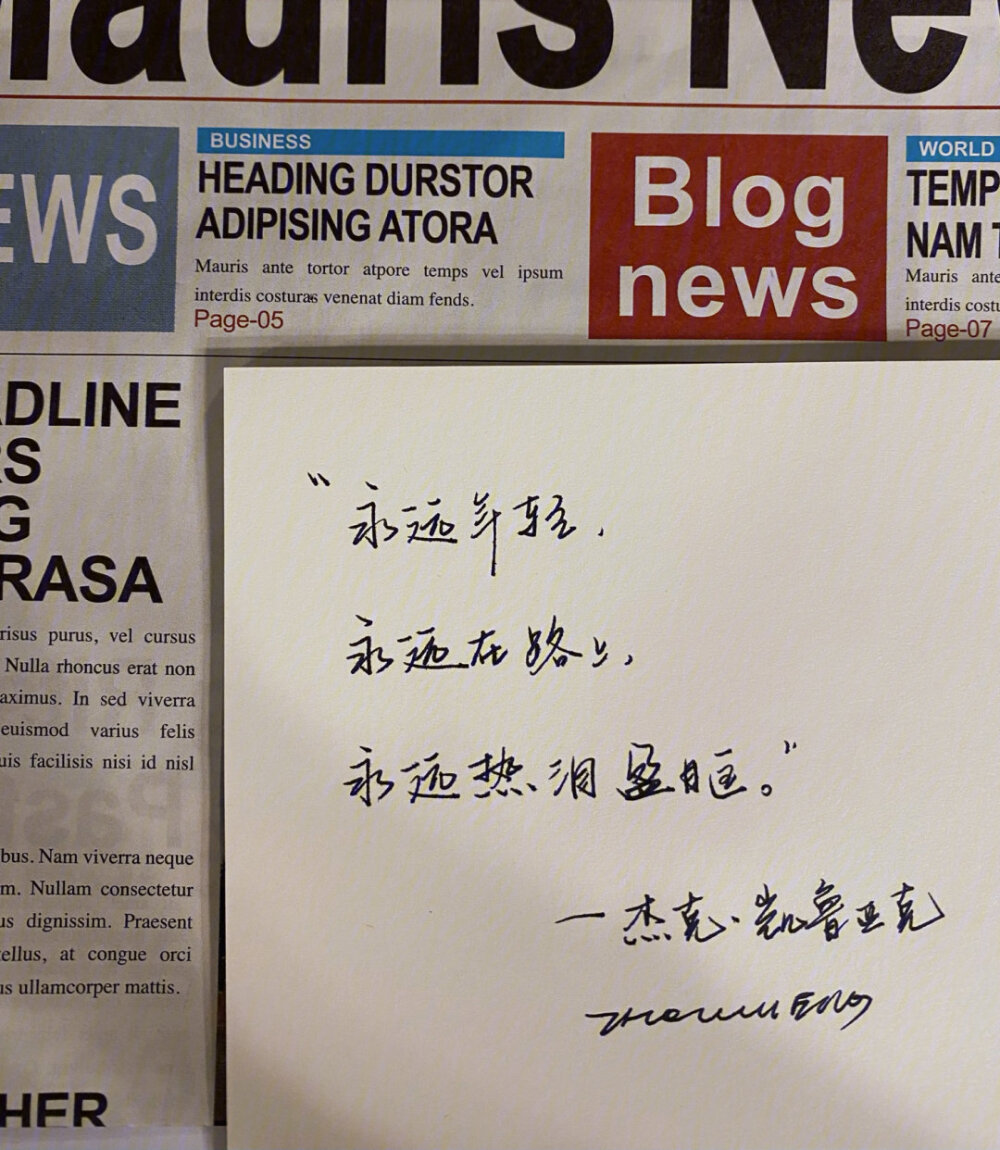 Mauris Ne
EWS
BUSINESS
HEADING DURSTOR
ADIPISING ATORA
Mauris ante tortor atpore temps vel ipsum
interdis costuras venenat diam fends.
Page-05
Blog
news
WORLD
TEMP
NAM T
Mauris ante
interdis costu
Page-07
ADLINE
RS
G
RASA
risus purus, vel cursus
Nulla rhoncus erat non
aximus. In sed viverra
euismod varius felis
uis facilisis nisi id nisl
bus. Nam viverra neque
m. Nullam consectetur
us dignissim. Praesent
tellus, at congue orci
us ullamcorper mattis.
HER
“永远年轻，
永远在路上，
永远热泪盈眶。”
—杰克·凯鲁亚克